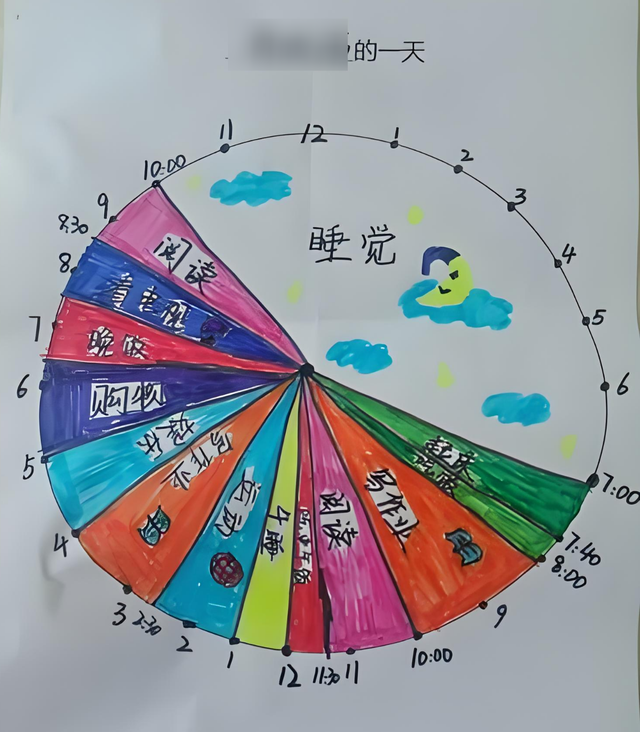 的一天
12
1
2
3
4
5
6
7:00
7:40
8:00
9
10:00
11
11:30
12
1
2
2:30
3
4
5
6
7
8
8:30
9
10:00
11
睡觉
起床
写作业
阅读
吃中午饭
午睡
运动
写作业
购物
晚饭
看电视
阅读